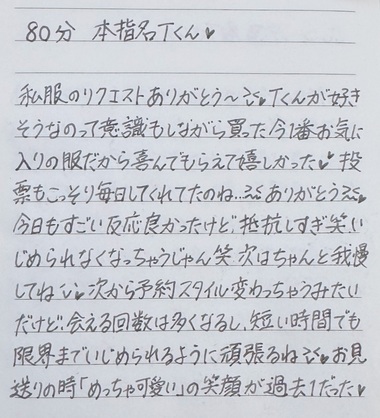 80分 本指名Tくん♥
私服のリクエストありがとう〜💦♥Tくんが好き
そうなのって意識もしながら買った今1番お気に
入りの服だから喜んでもらえて嬉しかった♥♥投
票もこっそり毎日してくれてたのね...💦ありがとう💦
今日もすごい反応良かったけど、抵抗しすぎ笑い
じめられなくなっちゃうじゃん笑 次はちゃんと我慢
してね💦次から予約スタイル変わっちゃうみたい
だけど、会える回数は多くなるし、短い時間でも
限界までいじめられるように頑張るね💦♥お見
送りの時「めっちゃ可愛い」の笑顔が過去1だった♥